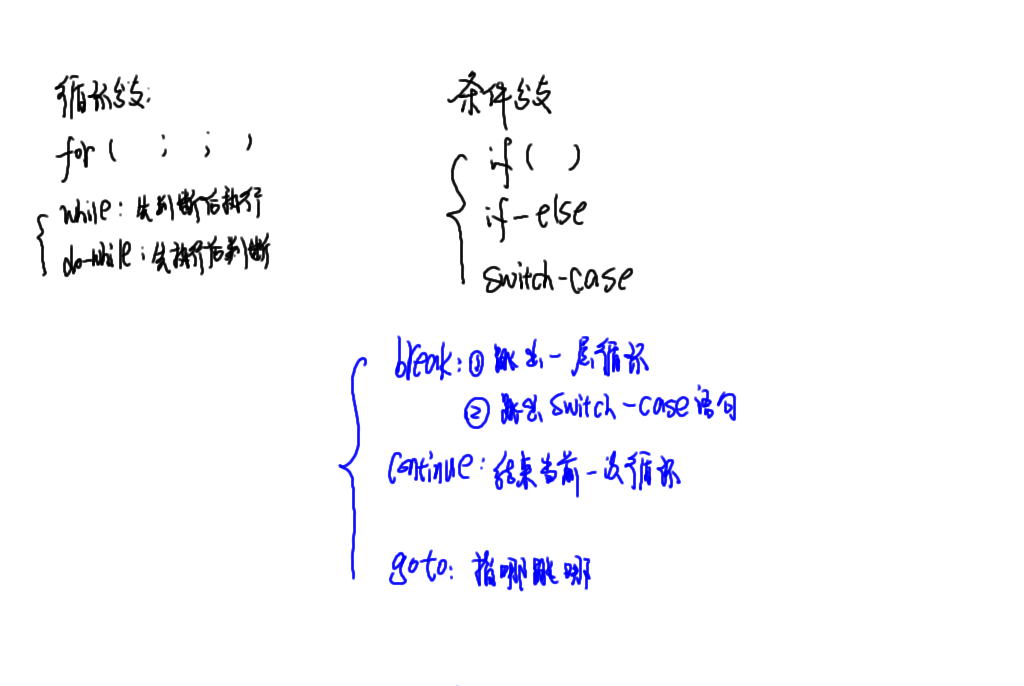 循环分支:
for( ; ; )
while: 先判断后执行
do-while: 先执行后判断
条件分支
if( )
if-else
switch-case
break: ① 跳出一层循环
② 跳出 switch-case 语句
continue: 结束当前一次循环
goto: 指哪跳哪